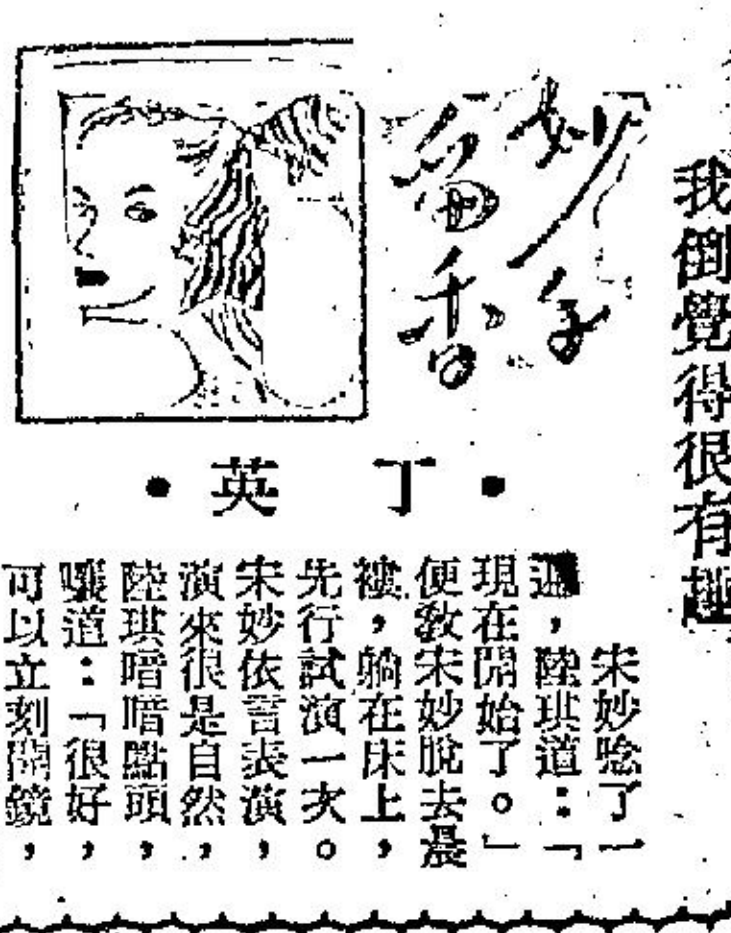 我倒覺得很有趣
妙
留香
•丁英•
宋妙唸了一
遍，陸琪道：「
現在開始了。」
便教宋妙脫去晨
褸，躺在床上，
先行試演一次。
宋妙依言表演，
演來很是自然，
陸琪暗暗點頭，
嚷道：「很好，
可以立刻開鏡，